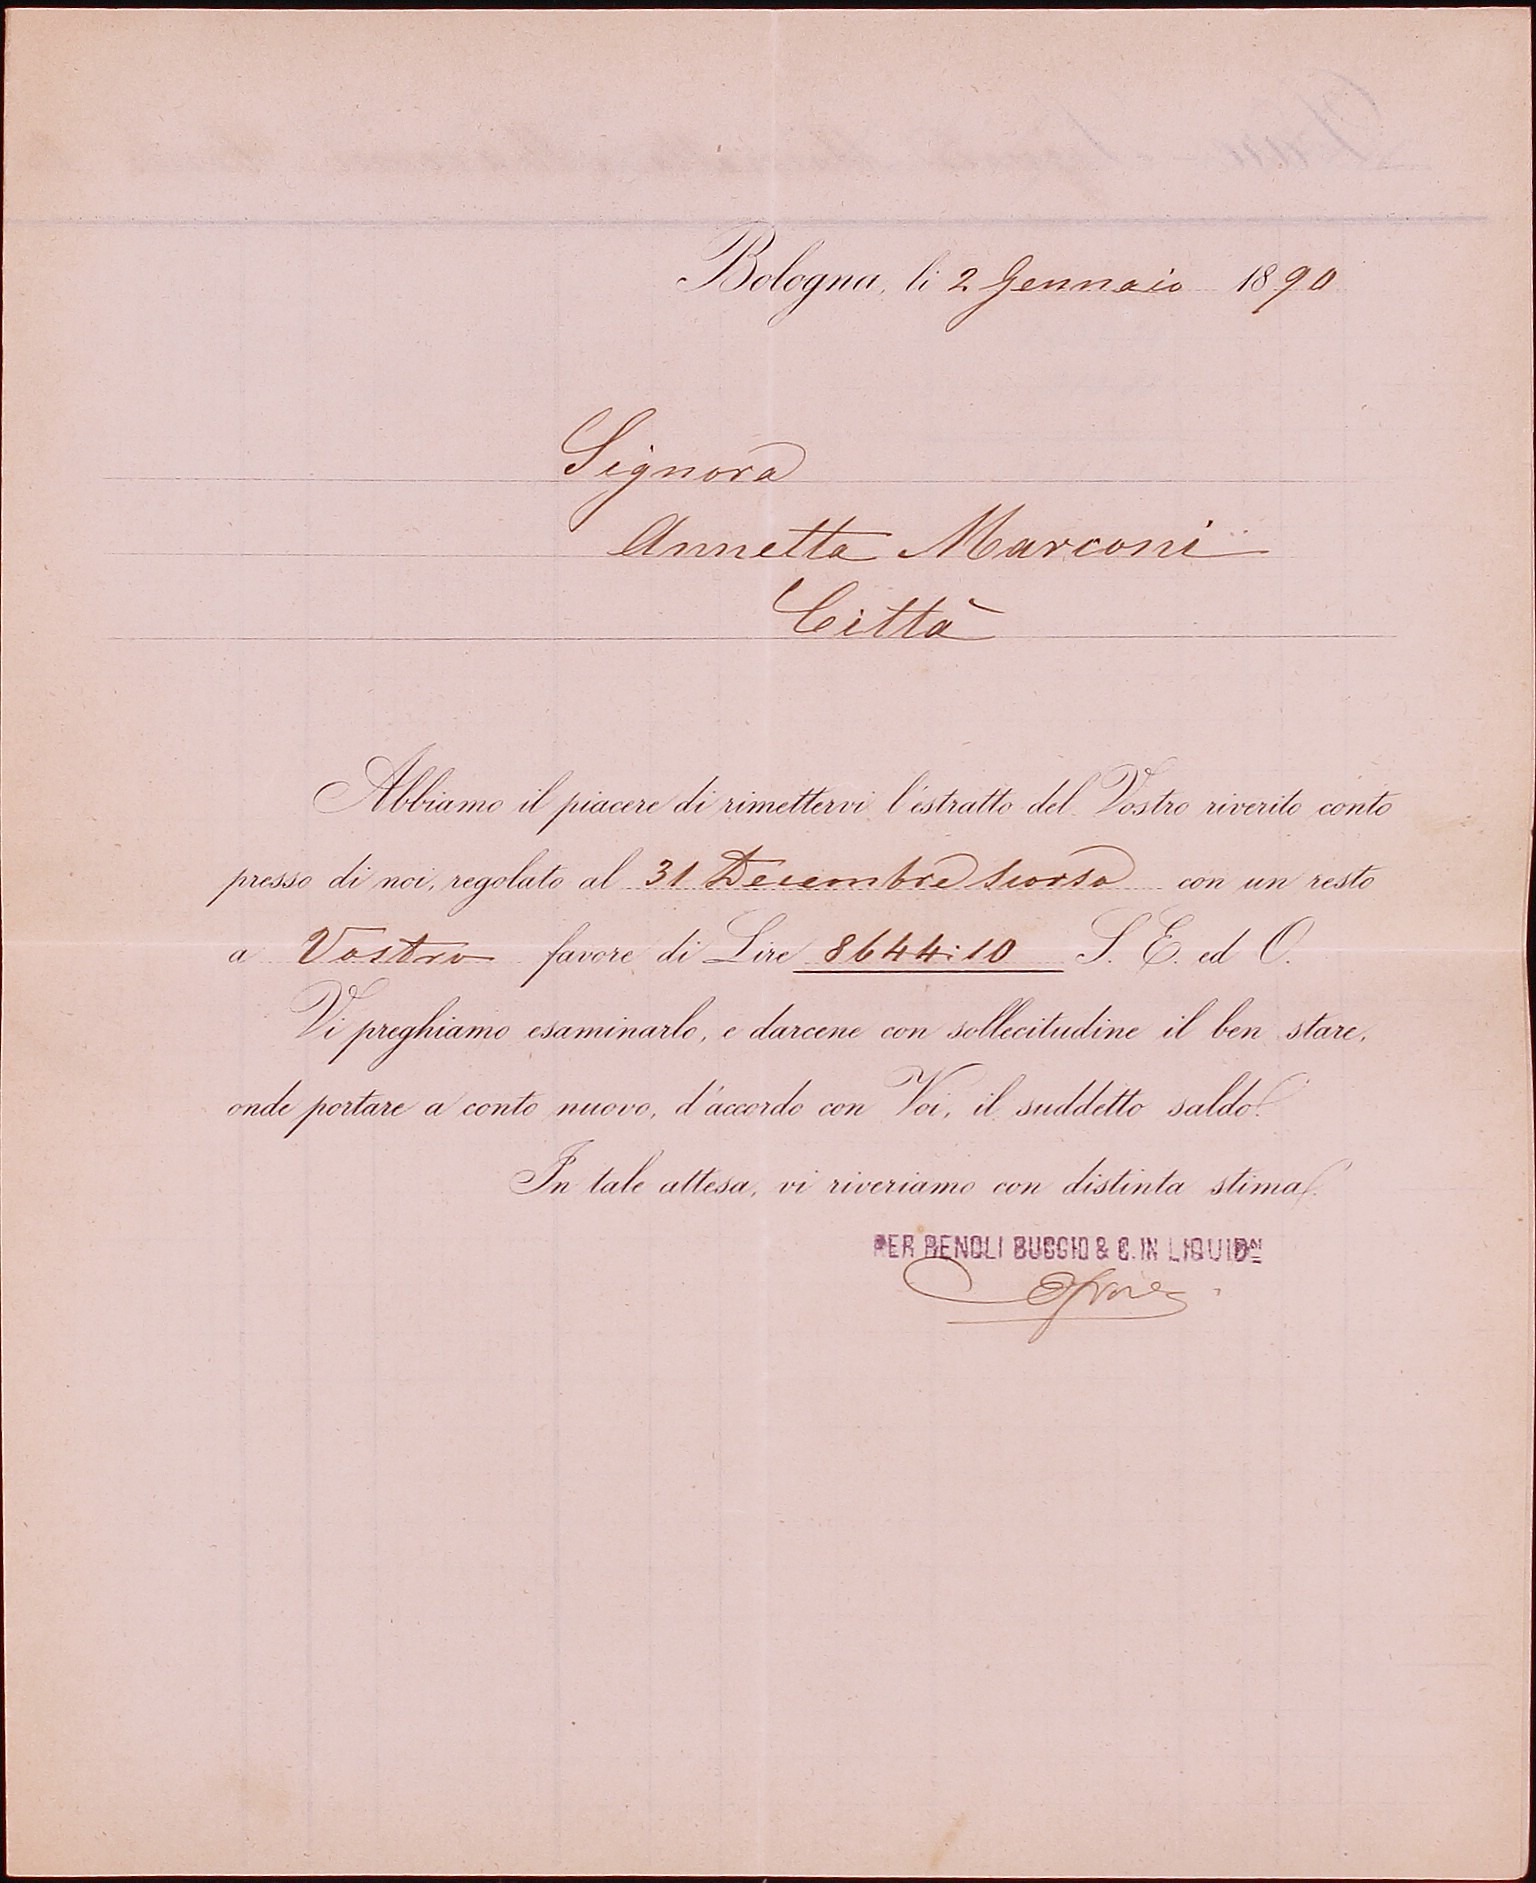 Bologna, li 2 Gennaio 1890
Signora
Annetta Marconi
Città
Abbiamo il piacere di rimettervi l'estratto del Vostro riverito conto
presso di noi, regolato al 31 Decembre scorso con un resto
a Vostro favore di Lire 8644:10 S. E. ed O.
Vi preghiamo esaminarlo, e darcene con sollecitudine il ben stare,
onde portare a conto nuovo, d'accordo con Voi, il suddetto saldo.
In tale attesa, vi riveriamo con distinta stima.
PER RENOLI BUGGIO & C. IN LIQUIDNE